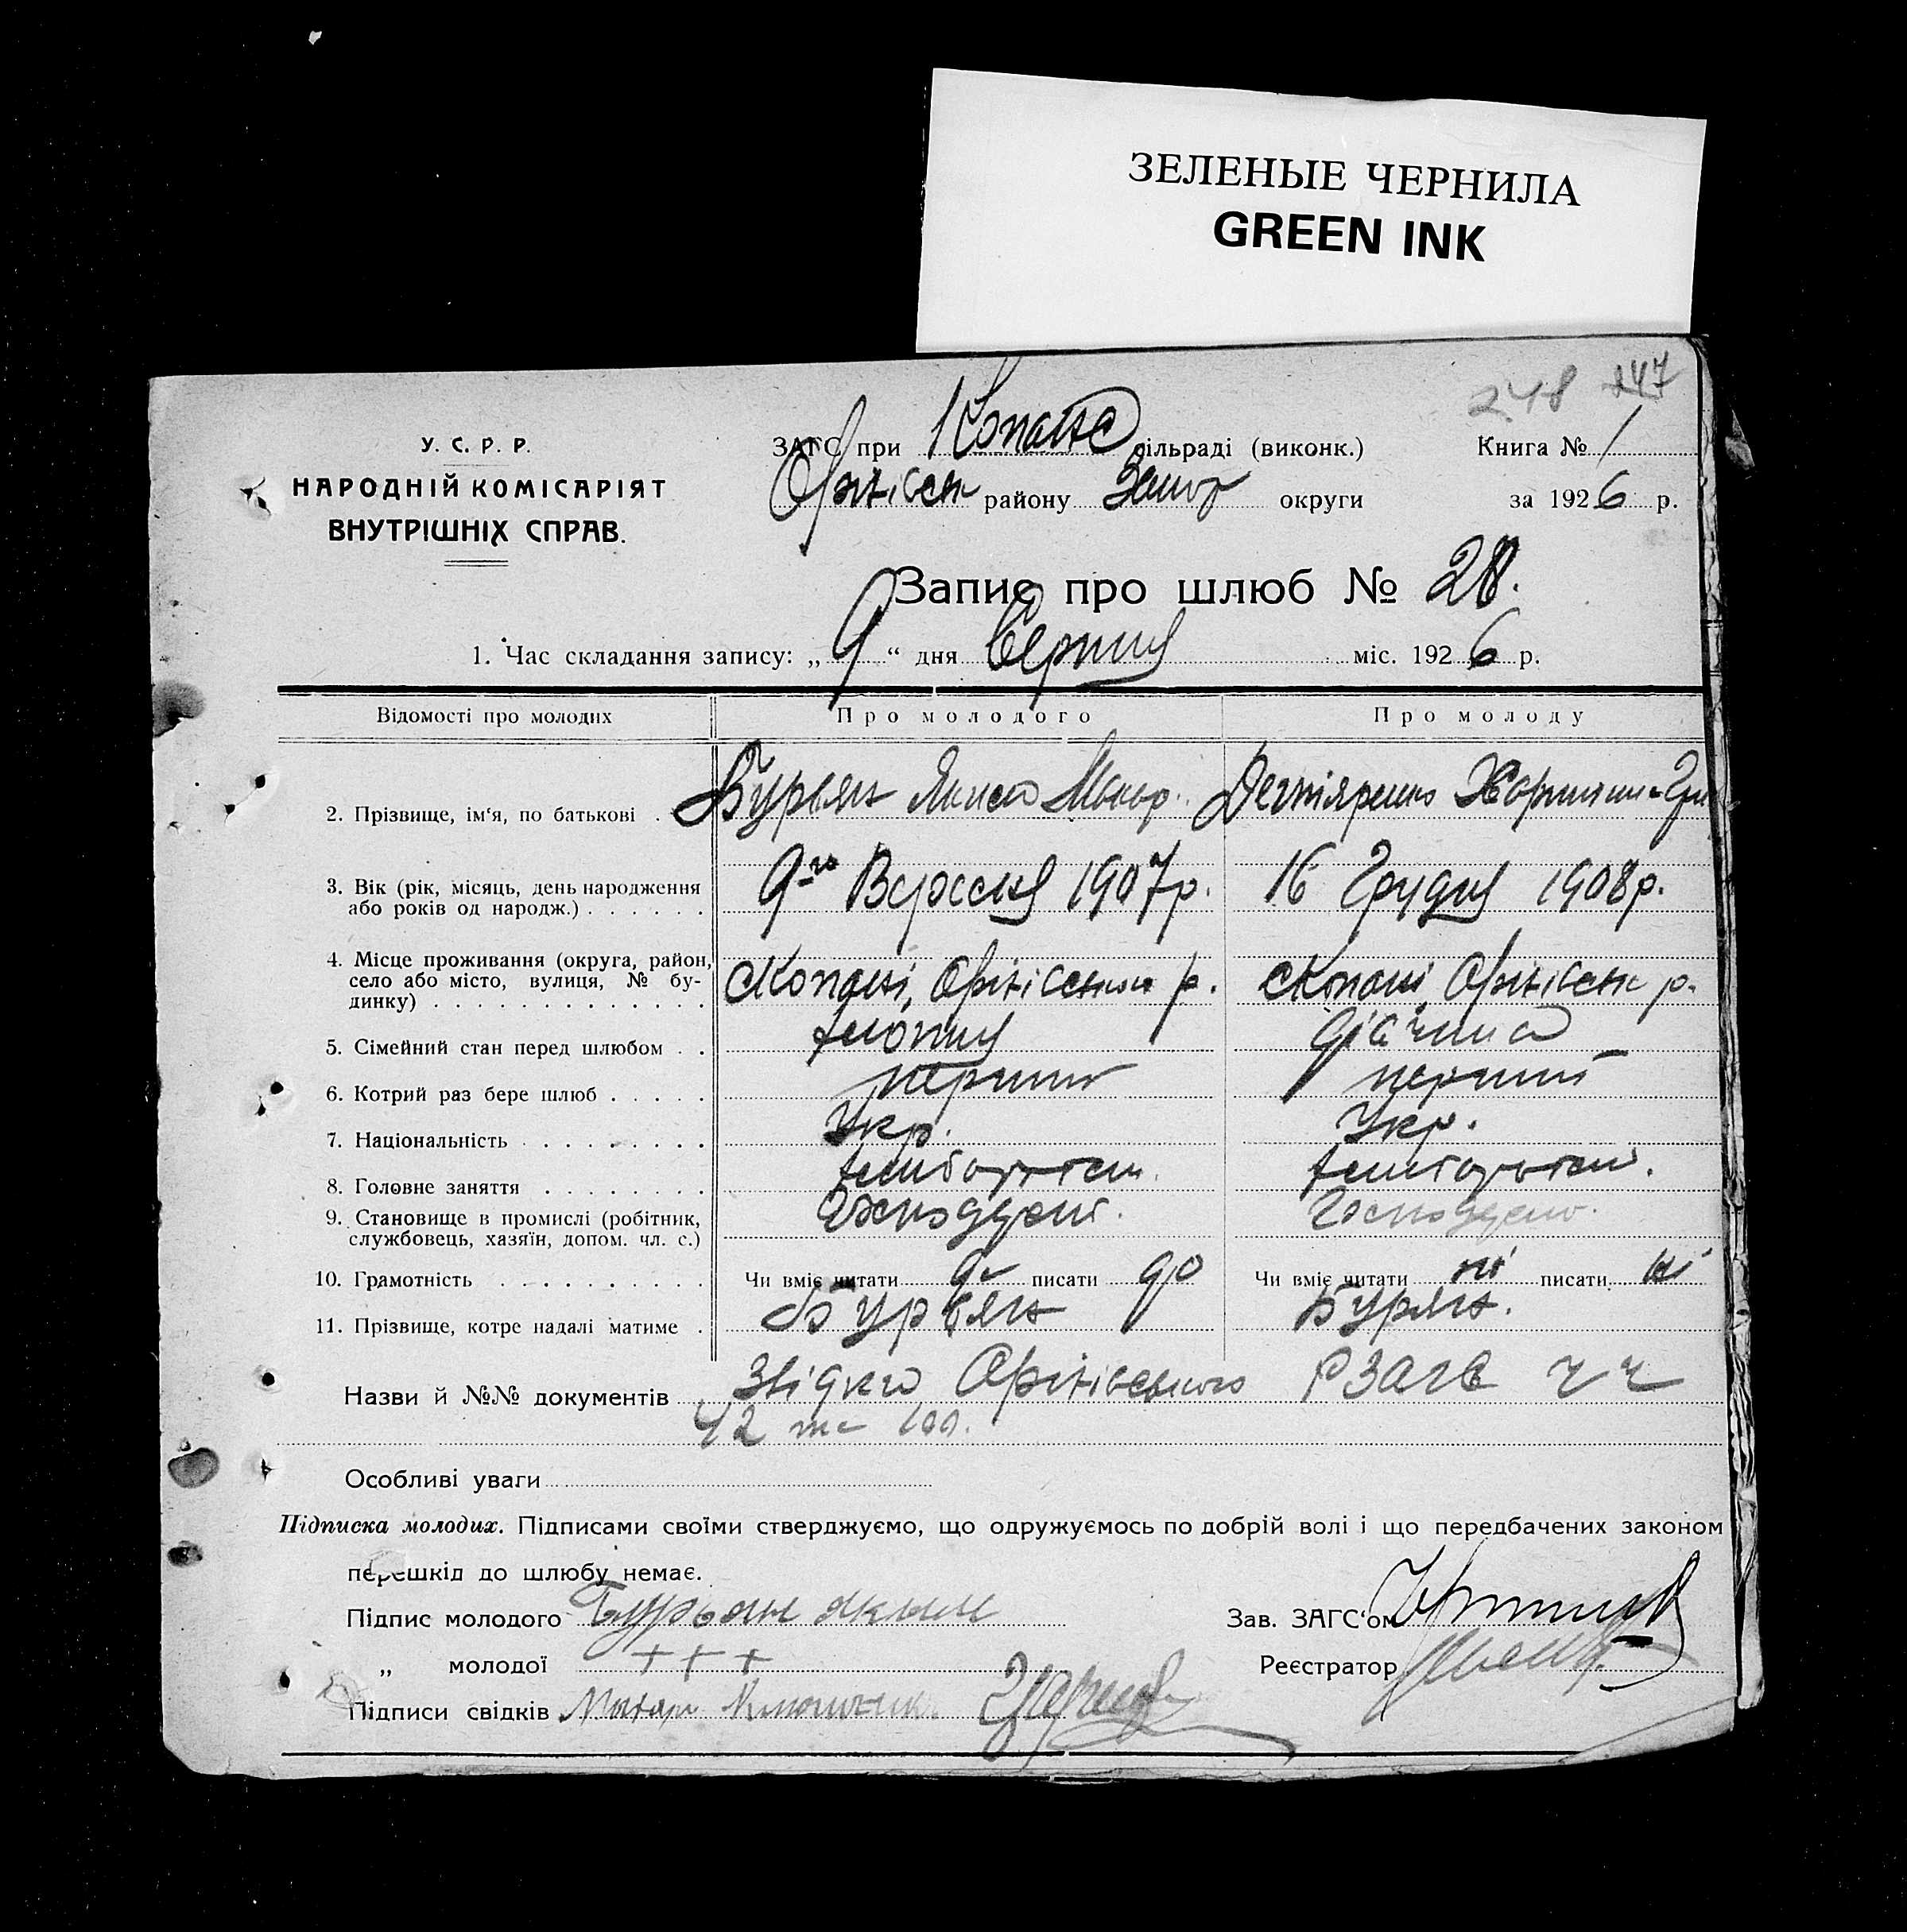 ЗЕЛЕНЫЕ ЧЕРНИЛА
GREEN INK
248 247
У. С. Р. Р.
НАРОДНІЙ КОМІСАРІЯТ
ВНУТРІШНІХ СПРАВ.
ЗАГС при Копанс сільраді (виконк.)
Оріхівськ району Запор округи
Книга № 1
за 1926 р.
Запис про шлюб № 28.
1. Час складання запису: „9“ дня Серпня міс. 1926 р.
Відомості про молодих Про молодого Про молоду
2. Прізвище, ім‘я, по батькові Бурьян Макар. Дегтяренко
3. Вік (рік, місяць, день народження 9го Вересня 1907 р. 16 Грудня 1908 р.
або років од народж.)
4. Місце проживання (округа, район,
село або місто, вулиця, № бу- с Копані, Оріхівськ р. с Копані, Оріхівськ р.
динку)
5. Сімейний стан перед шлюбом дівчина
6. Котрий раз бере шлюб перший перший
7. Національність Укр. Укр.
8. Головне заняття
9. Становище в промислі (робітник,
службовець, хазяїн, допом. чл. с.)
10. Грамотність Чи вміє читати писати Чи вміє читати ні писати ні
11. Прізвище, котре надалі матиме Бурьян Бурян.
Назви й №№ документів Звідка Оріхівського РЗАГС ч ч
42 та
Особливі уваги
Підписка молодих. Підписами своїми стверджуємо, що одружуємось по добрій волі і що передбачених законом
перешкід до шлюбу немає.
Підпис молодого Бурьян Якым
Зав. ЗАГС‘ом
„ молодої + + +
Реєстратор
Підписи свідків